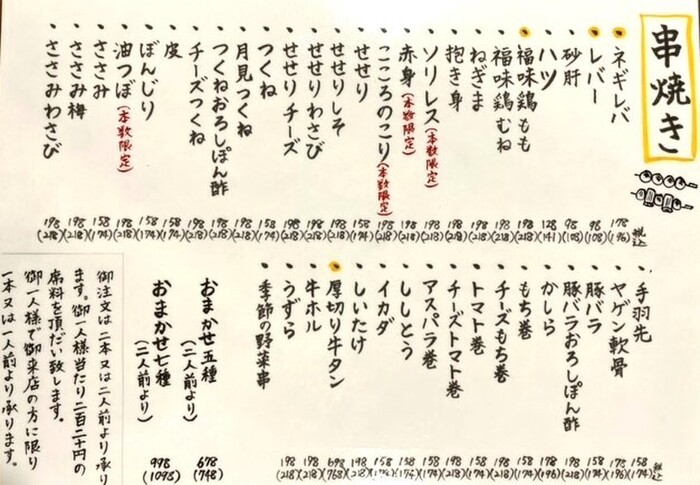 串焼き
税込
ネギレバ 178 (196)
レバー 98 (108)
砂肝 98 (108)
ハツ 128 (141)
福味鶏もも 198 (218)
福味鶏むね 198 (218)
ねぎま 198 (218)
抱き身 198 (218)
ソリレス(本数限定) 198 (218)
赤身(本数限定) 198 (218)
こころのこり(本数限定) 198 (218)
せせり 158 (174)
せせりしそ 198 (218)
せせりわさび 198 (218)
せせりチーズ 198 (218)
つくね 158 (174)
月見つくね 198 (218)
つくねおろしぽん酢 198 (218)
チーズつくね 198 (218)
皮 158 (174)
ぼんじり 158 (174)
油つぼ(本数限定) 198 (218)
ささみ 158 (174)
ささみ梅 198 (218)
ささみわさび 198 (218)
税込
手羽先 158 (174)
ヤゲン軟骨 178 (196)
豚バラ 158 (174)
豚バラおろしぽん酢 198 (218)
かしら 178 (196)
もち巻 158 (174)
チーズもち巻 198 (218)
トマト巻 158 (174)
チーズトマト巻 198 (218)
アスパラ巻 158 (174)
ししとう 158 (174)
イカダ 158 (174)
しいたけ 198 (218)
厚切り牛タン 698 (768)
牛ホル 198 (218)
うずら 198 (218)
季節の野菜串 198 (218)
おまかせ五種(二人前より) 678 (748)
おまかせ七種(二人前より) 998 (1098)
御注文は二本又は二人前より承り
ます。御一人様当たり二百二十円の
席料を頂だい致します。
御一人様で御来店の方に限り
一本又は一人前より承ります。